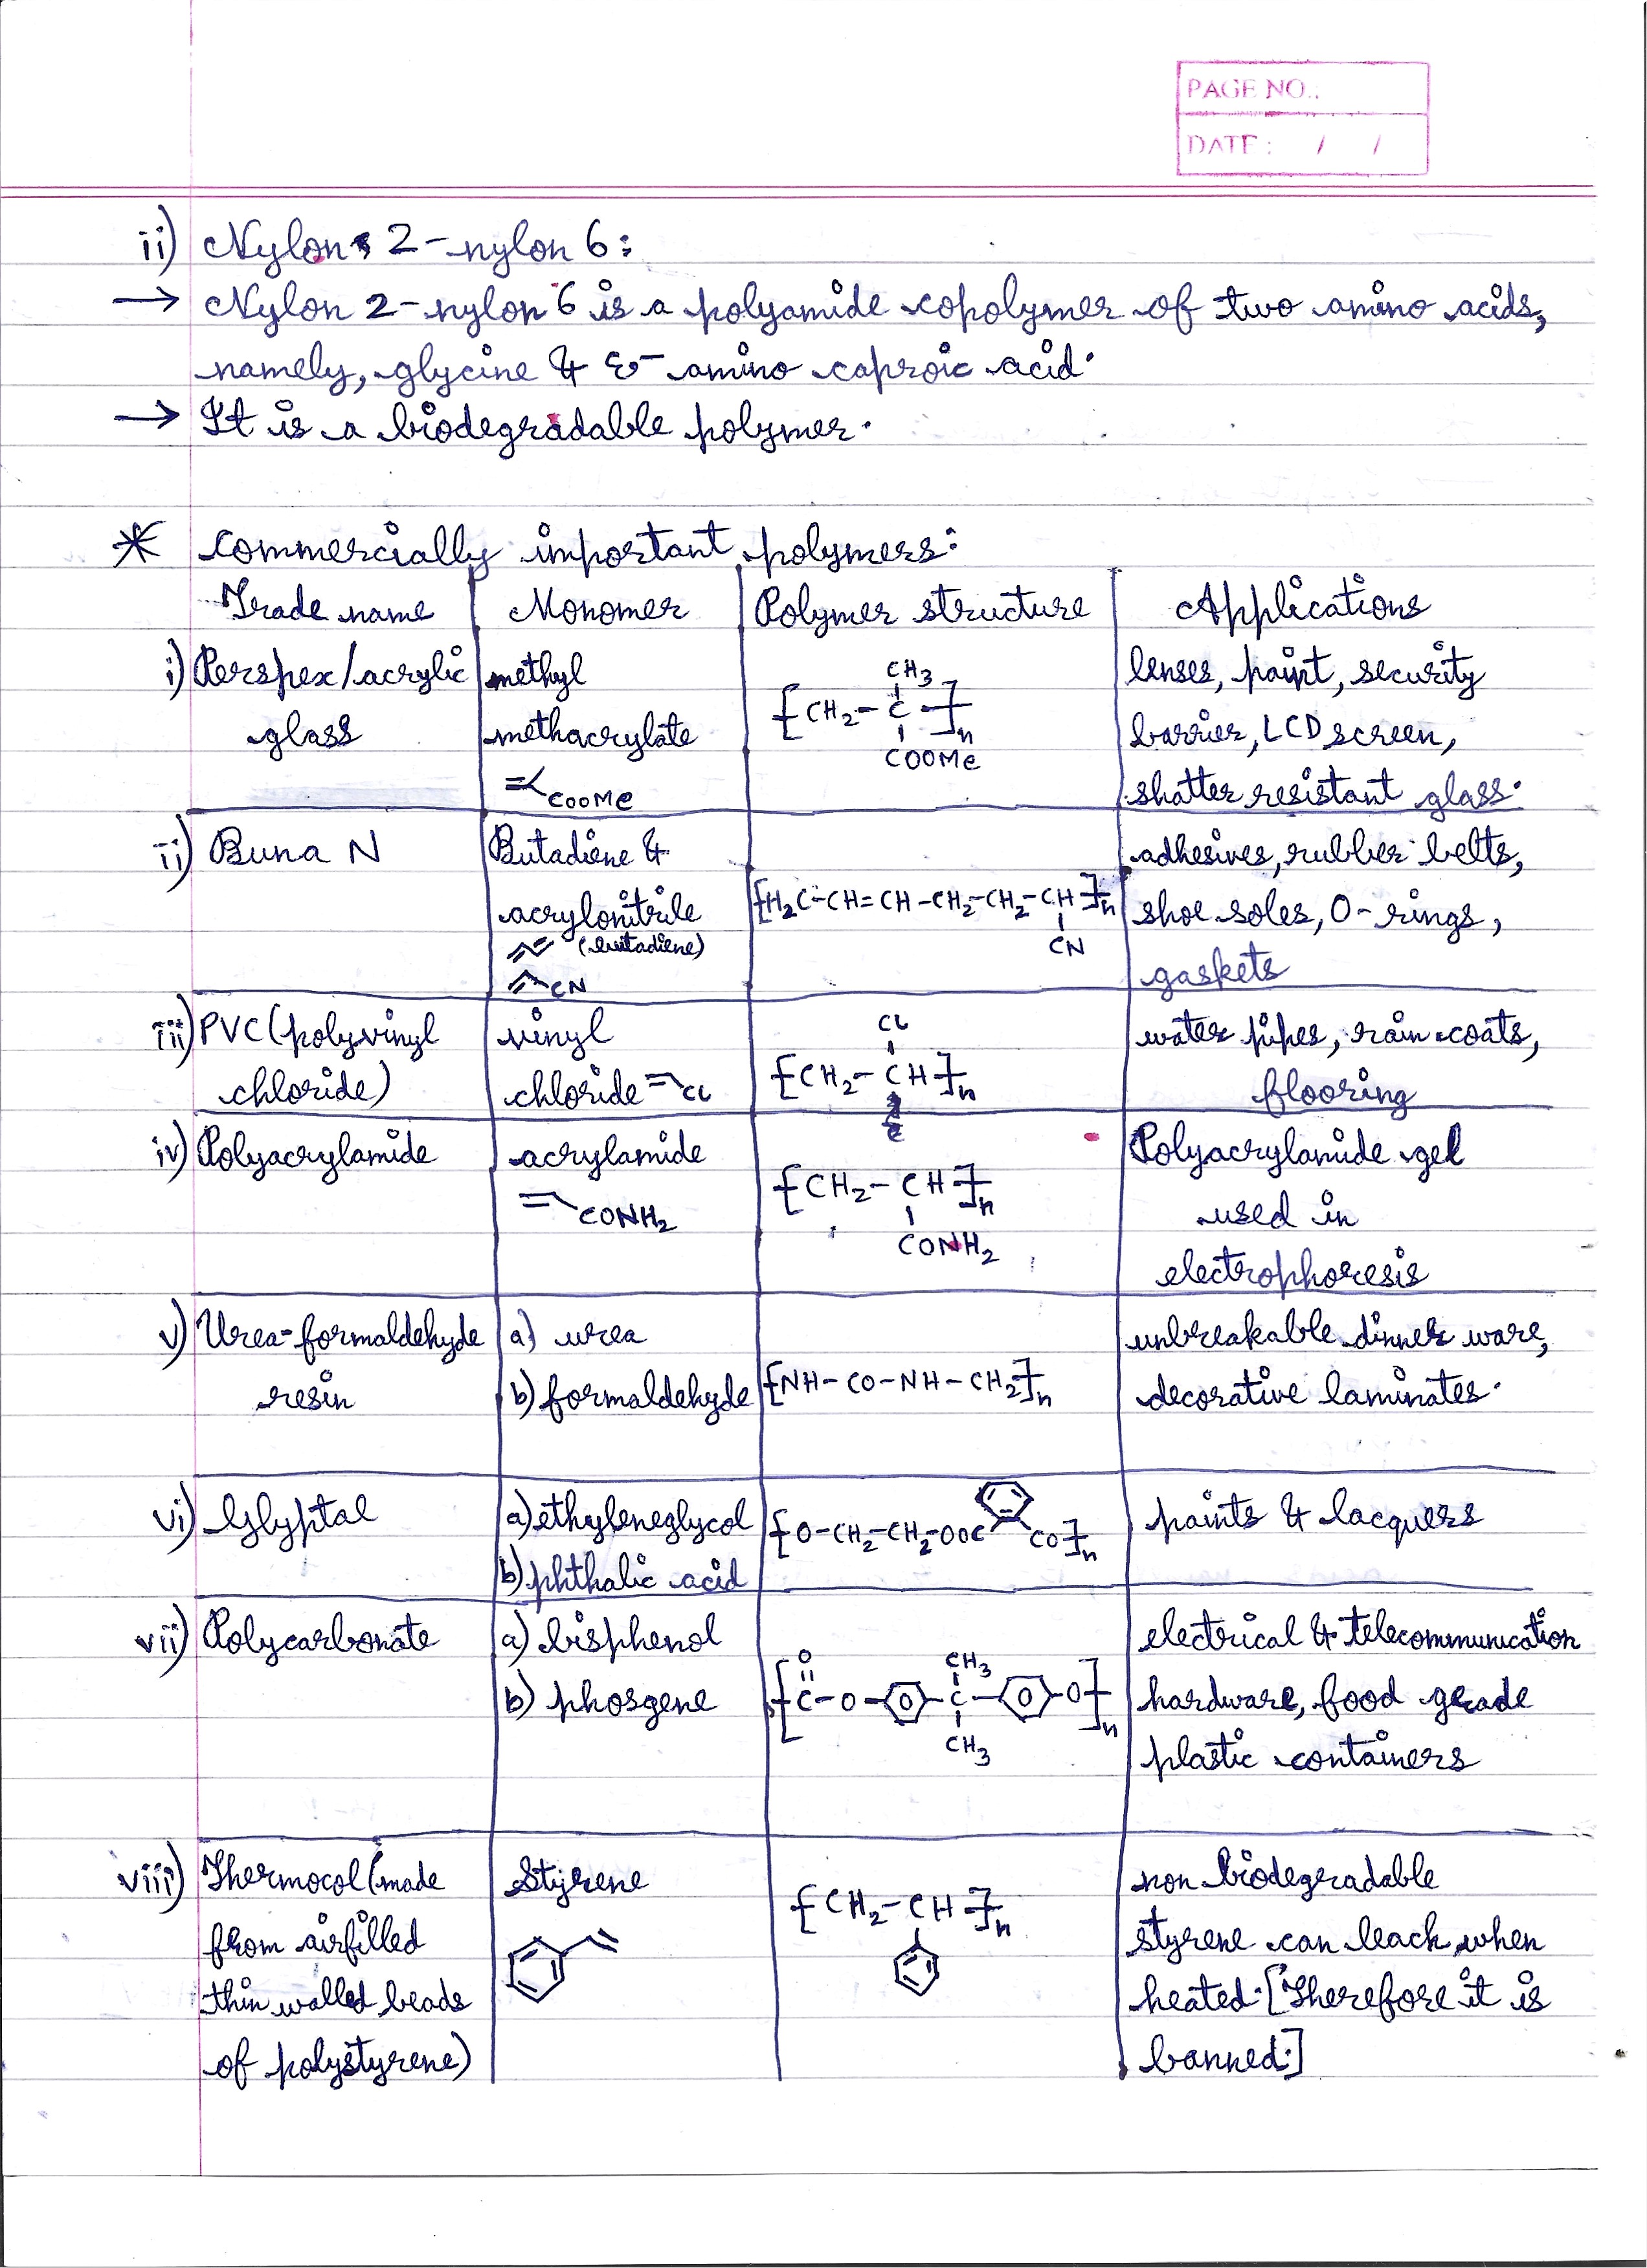 PAGE NO.:
DATE: / /
ii) Nylon 2-nylon 6:
→ Nylon 2-nylon 6 is a polyamide copolymer of two amino acids,
namely, glycine & ε- amino caproic acid.
→ It is a biodegradable polymer.
* Commercially important polymers:
Trade name | Monomer | Polymer structure | Applications
i) Perspex/acrylic glass | methyl methacrylate =< COOMe | [CH2-C(CH3)(COOMe)]n | lenses, paint, security barrier, LCD screen, shatter resistant glass.
ii) Buna N | Butadiene & acrylonitrile (butadiene) CN | [H2C-CH=CH-CH2-CH2-CH(CN)]n | adhesives, rubber belts, shoe soles, O-rings, gaskets
iii) PVC (polyvinyl chloride) | vinyl chloride =\Cl | [CH2-CH(Cl)]n | water pipes, rain coats, flooring
iv) Polyacrylamide | acrylamide =\CONH2 | [CH2-CH(CONH2)]n | Polyacrylamide gel used in electrophoresis
v) Urea-formaldehyde resin | a) urea b) formaldehyde | [NH-CO-NH-CH2]n | unbreakable dinner ware, decorative laminates.
vi) Glyptal | a) ethyleneglycol b) phthalic acid | [O-CH2-CH2-OOC CO]n | paints & lacquers
vii) Polycarbonate | a) bisphenol b) phosgene | [C(=O)-O-⌬-C(CH3)(CH3)-⌬-O]n | electrical & telecommunication hardware, food grade plastic containers
viii) Thermocol (made from airfilled thin walled beads of polystyrene) | Styrene | [CH2-CH]n | non biodegradable styrene can leach when heated. [Therefore it is banned.]